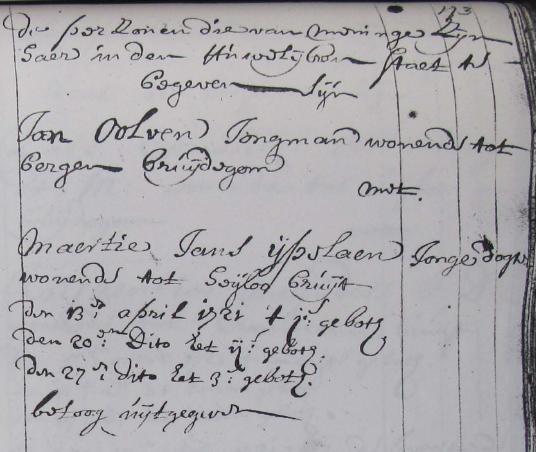 123
de personen die van meninge Zijn
haer in den Huwelijken staet te
begeven Sijn
Jan Oolven Jongman wonende tot
bergen bruijdegom
met.
Maertie Jans ijpslaen Jonge dogter
wonende tot heijloo bruijt
den 13en april 1721 't je: gebodt
den 20en: dito het ij: gebodt.
den 27e dito het 3: gebodt.
betoog uijtgegeven